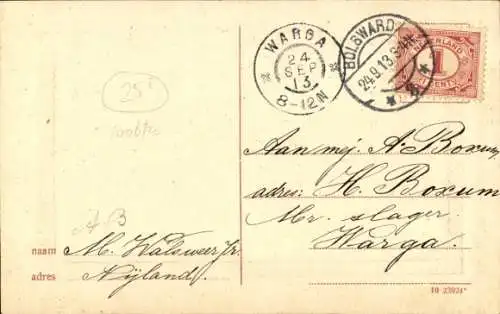 WARGA
24
SEP
13
8-12N
BOLSWARD
24.9.13.
NEDERLAND
1
CENT
25
Aan mej. A. Boxum,
adres: H. Boxum
Mr. slager
Warga.
A B
naam M. Walsweer Jr.
adres Nijland.
10 23924*